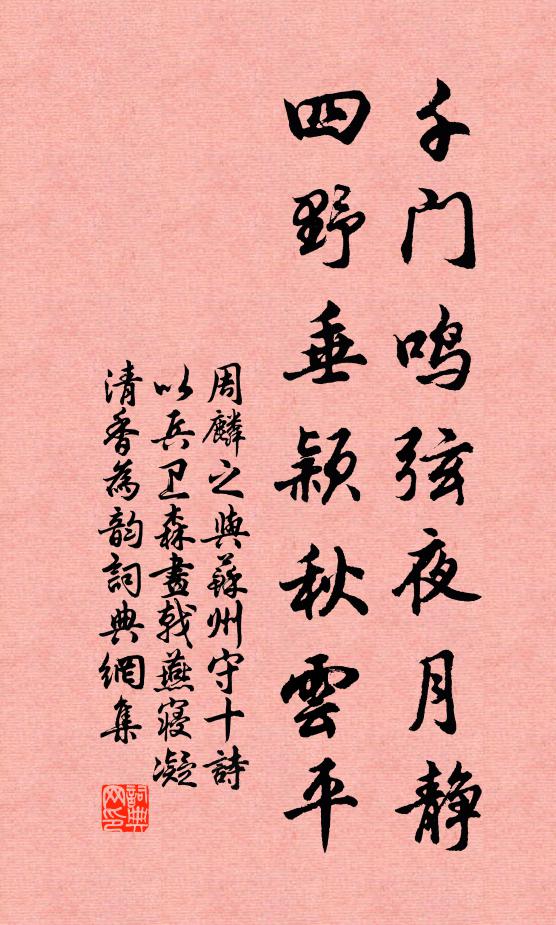 千门鸣弦夜月静
四野垂颖秋雲平
周麟之與蘇州守十詩
以兵卫森畫戟燕寝凝
清香為韵詞典網集
詞典网印